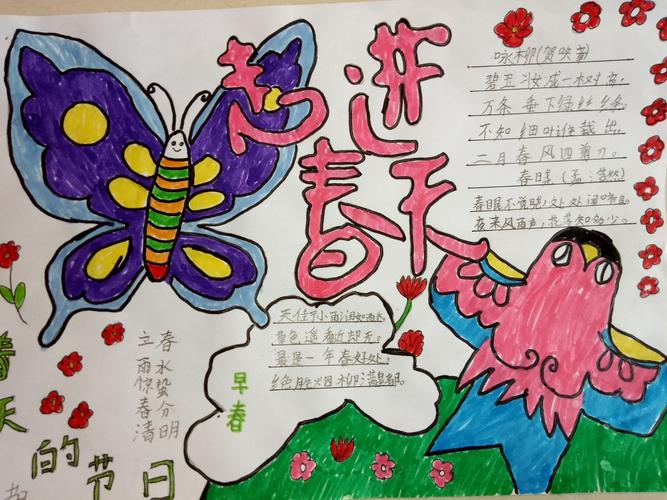 走进春天
咏柳(贺知章)
碧玉妆成一树高,
万条垂下绿丝绦.
不知细叶谁裁出,
二月春风似剪刀.
春晓(孟浩然)
春眠不觉晓,处处闻啼鸟.
夜来风雨声,花落知多少.
天街小雨润如酥,
草色遥看近却无.
最是一年春好处,
绝胜烟柳满皇都.
早春
立春
雨水
惊蛰
春分
清明
春天的节日